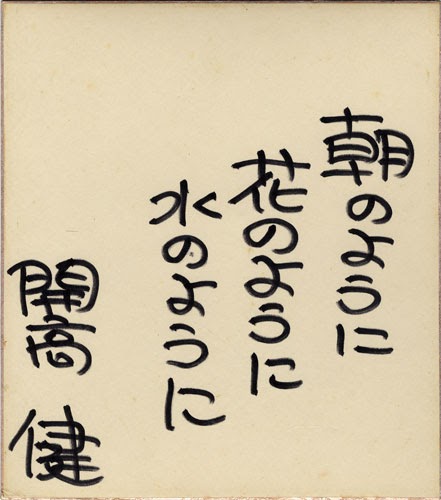 朝のように
花のように
水のように
開高 健